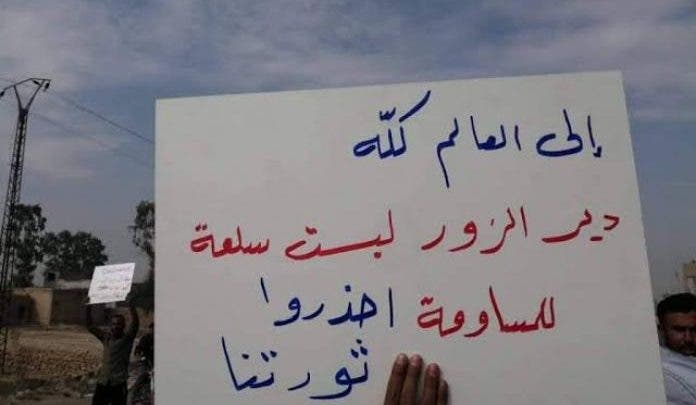 إلى العالم ككّه
دير الزور ليست سلعة
للمساومة احذروا
ثورتنا